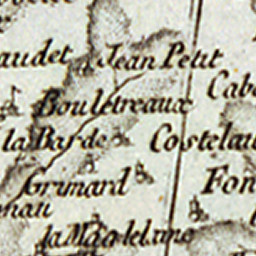 audet Jean Petit
Cab
Bouletreaux
la Barde Costelau
Grimard Fon
enau
la Magdelaine